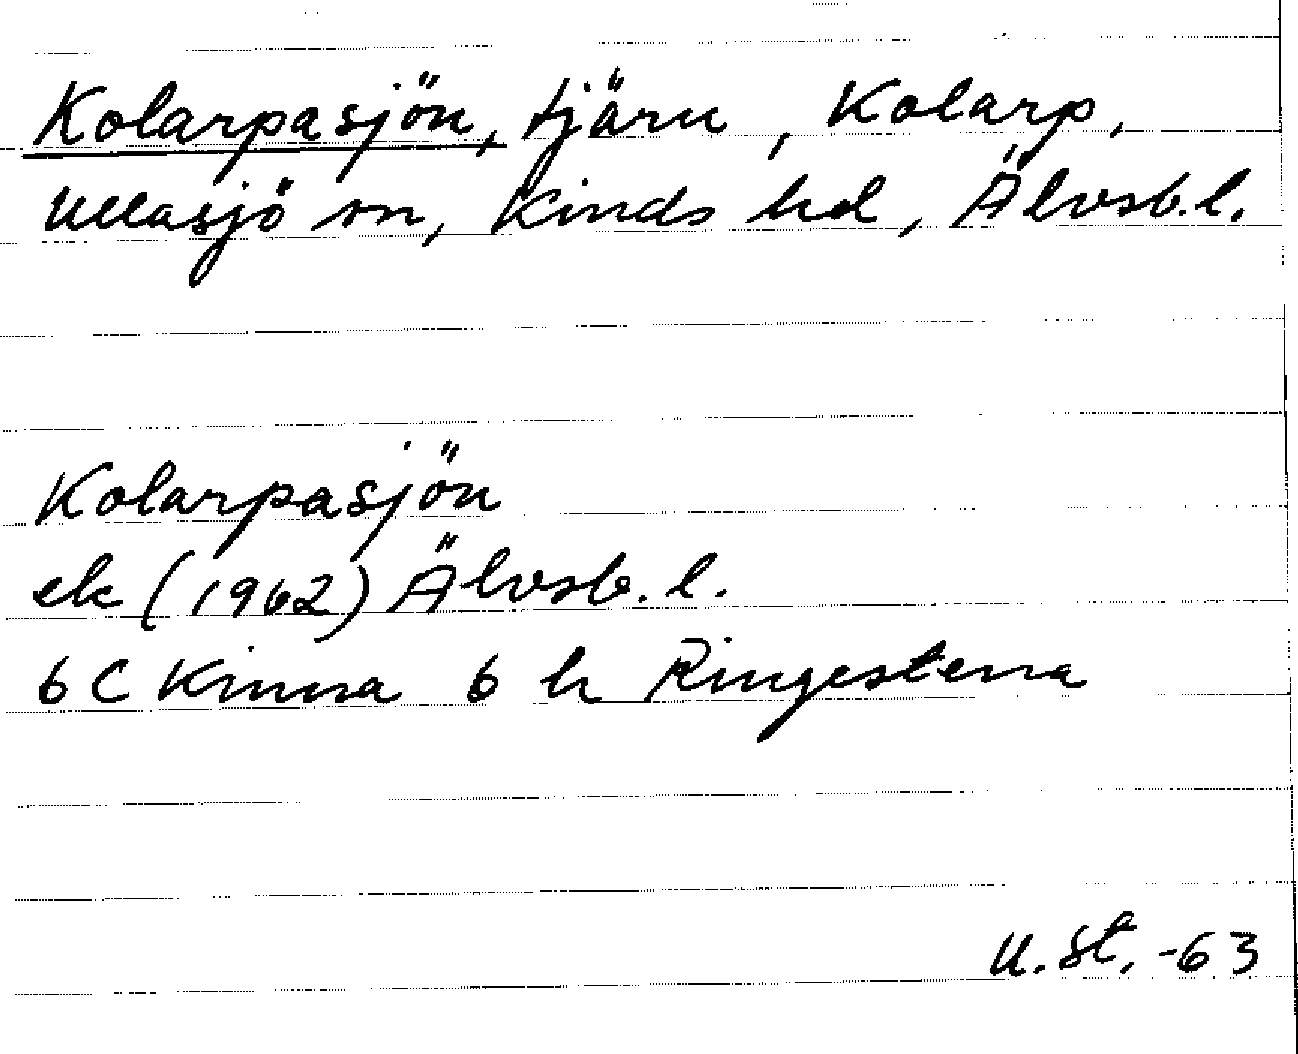 Kolarpasjön, tjärn, Kolarp,
Ullasjö sn, Kinds hd, Älvsb.l.
Kolarpasjön
ek (1962) Älvsb. l.
6 C Kinna 6 h Ringestena
U. St. -63